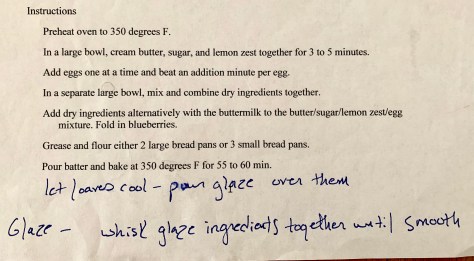 Instructions
Preheat oven to 350 degrees F.
In a large bowl, cream butter, sugar, and lemon zest together for 3 to 5 minutes.
Add eggs one at a time and beat an addition minute per egg.
In a separate large bowl, mix and combine dry ingredients together.
Add dry ingredients alternatively with the buttermilk to the butter/sugar/lemon zest/egg
mixture. Fold in blueberries.
Grease and flour either 2 large bread pans or 3 small bread pans.
Pour batter and bake at 350 degrees F for 55 to 60 min.
let loaves cool - pour glaze over them
Glaze - whisk glaze ingredients together until smooth